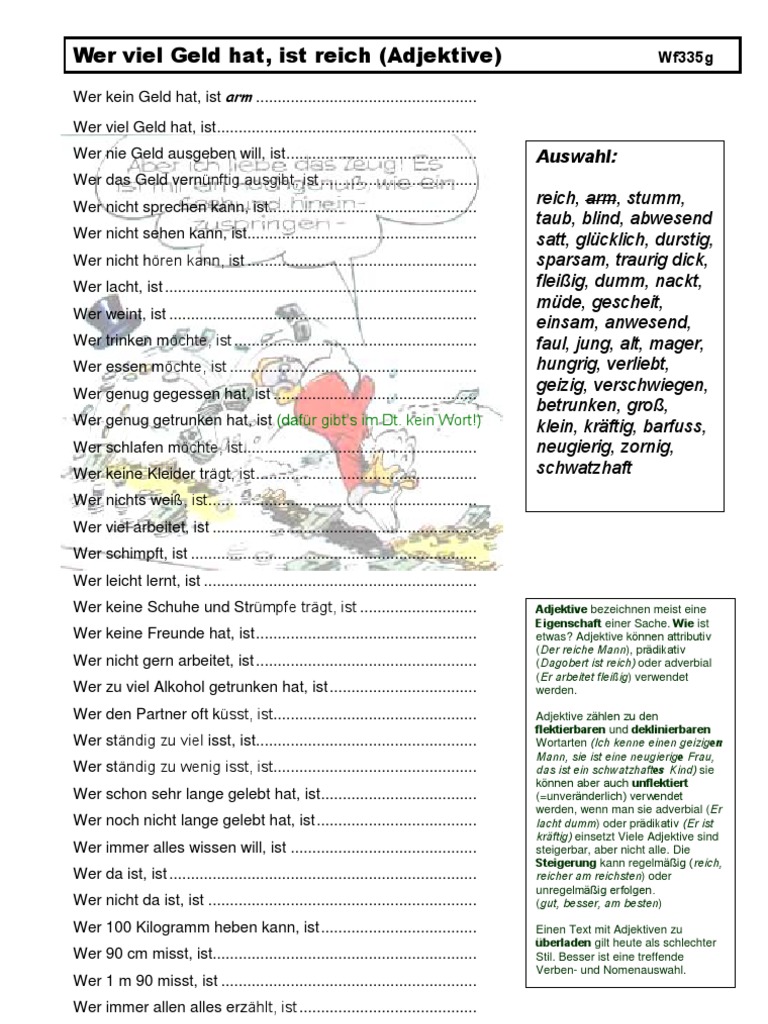 Wer viel Geld hat, ist reich (Adjektive) Wf335g
Wer kein Geld hat, ist arm ...................................................
Wer viel Geld hat, ist............................................................
Wer nie Geld ausgeben will, ist............................................
Wer das Geld vernünftig ausgibt, ist ....................................
Wer nicht sprechen kann, ist................................................
Wer nicht sehen kann, ist.....................................................
Wer nicht hören kann, ist .....................................................
Wer lacht, ist ........................................................................
Wer weint, ist .......................................................................
Wer trinken möchte, ist ........................................................
Wer essen möchte, ist .........................................................
Wer genug gegessen hat, ist ...............................................
Wer genug getrunken hat, ist (dafür gibt's im Dt. kein Wort!)
Wer schlafen möchte, ist......................................................
Wer keine Kleider trägt, ist...................................................
Wer nichts weiß, ist..............................................................
Wer viel arbeitet, ist .............................................................
Wer schimpft, ist ..................................................................
Wer leicht lernt, ist ...............................................................
Wer keine Schuhe und Strümpfe trägt, ist ...........................
Wer keine Freunde hat, ist...................................................
Wer nicht gern arbeitet, ist...................................................
Wer zu viel Alkohol getrunken hat, ist..................................
Wer den Partner oft küsst, ist...............................................
Wer ständig zu viel isst, ist...................................................
Wer ständig zu wenig isst, ist...............................................
Wer schon sehr lange gelebt hat, ist....................................
Wer noch nicht lange gelebt hat, ist.....................................
Wer immer alles wissen will, ist ...........................................
Wer da ist, ist .......................................................................
Wer nicht da ist, ist ..............................................................
Wer 100 Kilogramm heben kann, ist....................................
Wer 90 cm misst, ist.............................................................
Wer 1 m 90 misst, ist ...........................................................
Wer immer allen alles erzählt, ist .........................................
Aber ich liebe das Zeug! Es
ist mir ein wie ein
hinein-
zuspringen -
Auswahl:
reich, arm, stumm,
taub, blind, abwesend
satt, glücklich, durstig,
sparsam, traurig dick,
fleißig, dumm, nackt,
müde, gescheit,
einsam, anwesend,
faul, jung, alt, mager,
hungrig, verliebt,
geizig, verschwiegen,
betrunken, groß,
klein, kräftig, barfuss,
neugierig, zornig,
schwatzhaft
Adjektive bezeichnen meist eine
Eigenschaft einer Sache. Wie ist
etwas? Adjektive können attributiv
(Der reiche Mann), prädikativ
(Dagobert ist reich) oder adverbial
(Er arbeitet fleißig) verwendet
werden.
Adjektive zählen zu den
flektierbaren und deklinierbaren
Wortarten (Ich kenne einen geizigen
Mann, sie ist eine neugierige Frau,
das ist ein schwatzhaftes Kind) sie
können aber auch unflektiert
(=unveränderlich) verwendet
werden, wenn man sie adverbial (Er
lacht dumm) oder prädikativ (Er ist
kräftig) einsetzt Viele Adjektive sind
steigerbar, aber nicht alle. Die
Steigerung kann regelmäßig (reich,
reicher am reichsten) oder
unregelmäßig erfolgen.
(gut, besser, am besten)
Einen Text mit Adjektiven zu
überladen gilt heute als schlechter
Stil. Besser ist eine treffende
Verben- und Nomenauswahl.